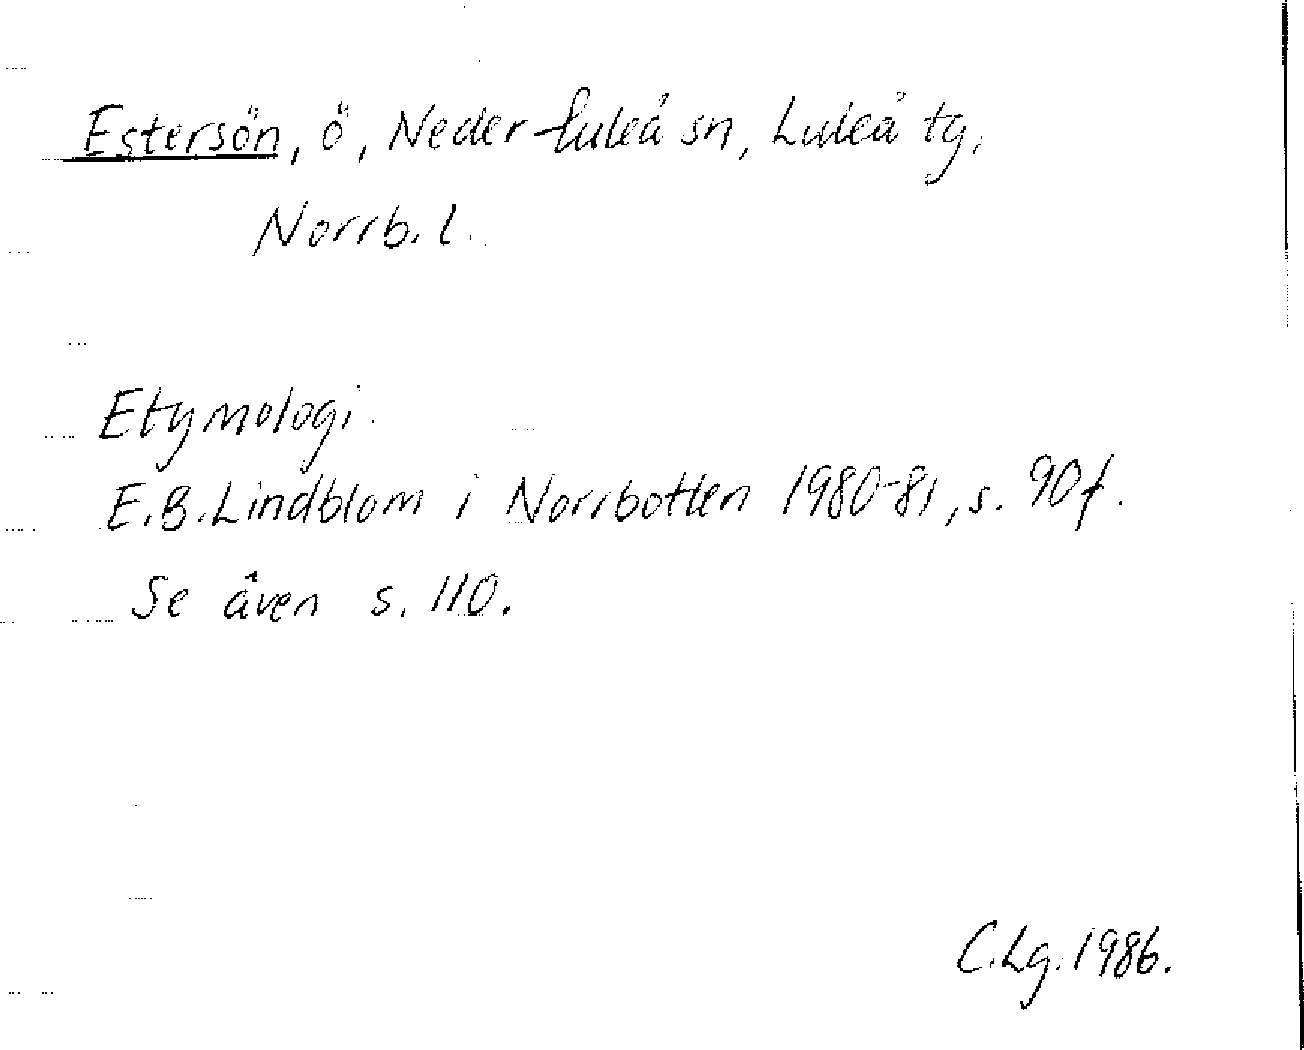 Estersön, ö, Neder-luleå sn, Luleå tg,
Norrb. l.
Etymologi.
E.B.Lindblom i Norrbotten 1980-81, s. 90f.
Se även s. 110.
C.Lg. 1986.